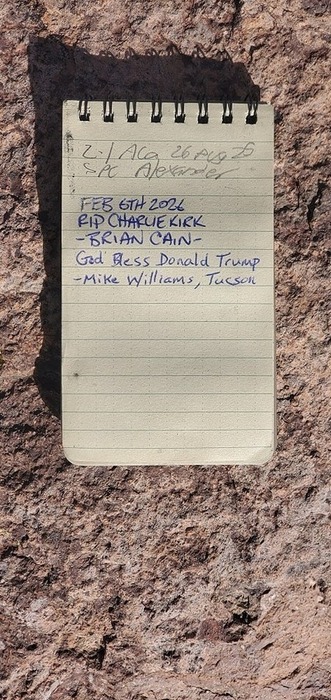 2-1 ACO 26 Aug 25
SPC Alexander
FEB 6TH 2026
RIP CHARLIE KIRK
-BRIAN CAIN-
God Bless Donald Trump
-Mike Williams, Tucson